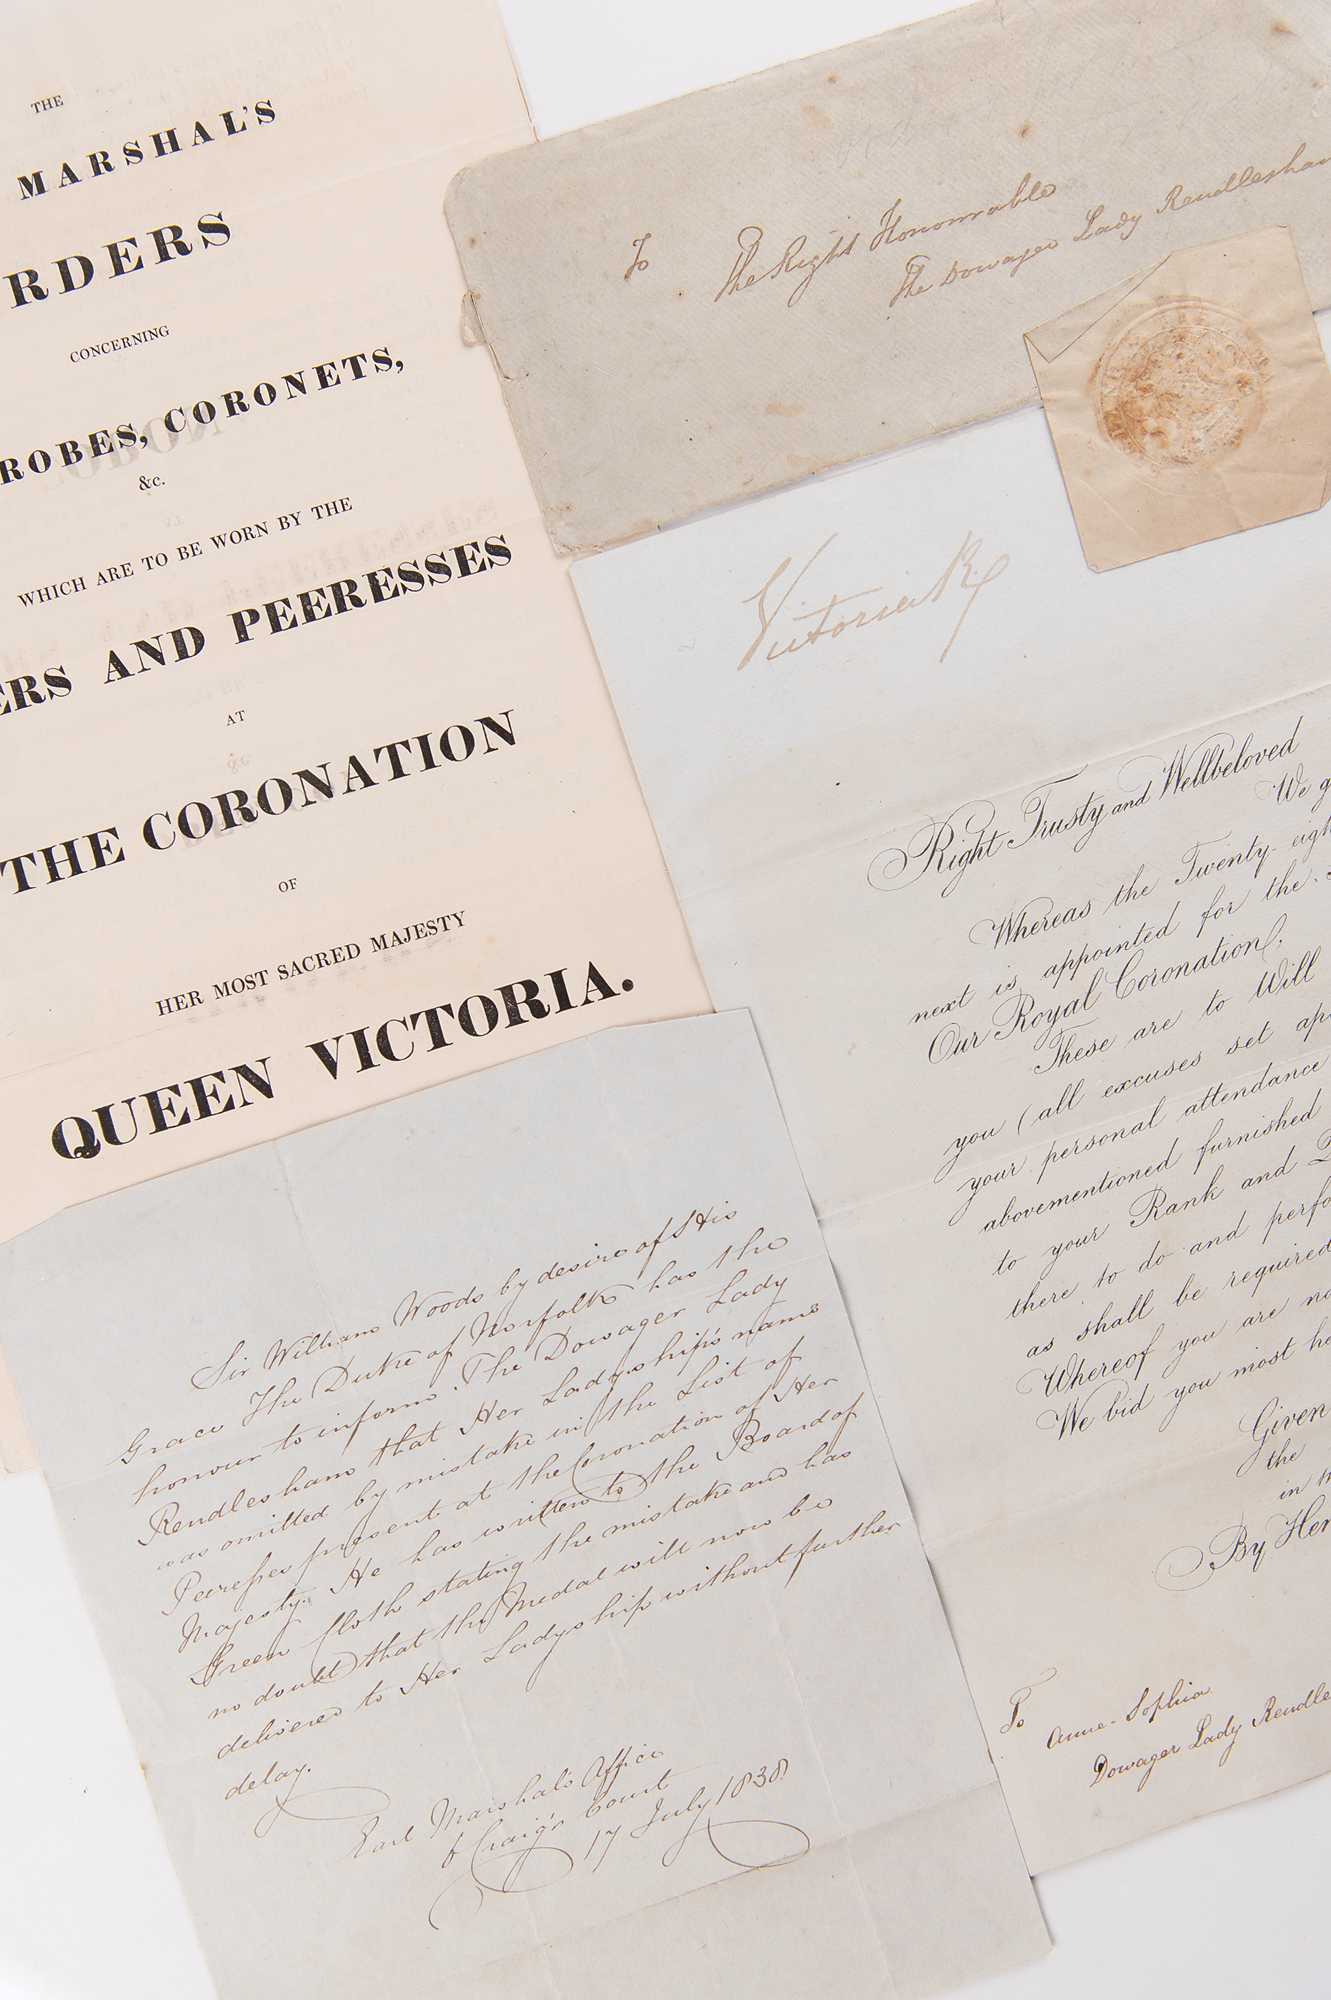 THE
MARSHAL'S
RDERS
CONCERNING
ROBES, CORONETS,
&c.
WHICH ARE TO BE WORN BY THE
ERS AND PEERESSES
AT
THE CORONATION
OF
HER MOST SACRED MAJESTY
QUEEN VICTORIA.
To
The Right Honourable
The Dowager Lady Rendlesham
Victoria R
Right Trusty and Wellbeloved
We g
Whereas the Twenty-eigh
next is appointed for the
Our Royal Coronation,
These are to Will
you (all excuses set ap
your personal attendance
abovementioned furnished
to your Rank and
there to do and perfo
as shall be required
Whereof you are no
We bid you most he
Given
the
in
By Her
To
Anne-Sophia
Dowager Lady Rendle
Sir William Woods by desire of His
Grace The Duke of Norfolk has the
honour to inform The Dowager Lady
Rendlesham that Her Ladyship's name
was omitted by mistake in the List of
Peeresses present at the Coronation of Her
Majesty. He has written to the Board of
Green Cloth stating the mistake and has
no doubt that the Medal will now be
delivered to Her Ladyship without further
delay.
Earl Marshal's Office
6 Craig's Court
17 July 1838